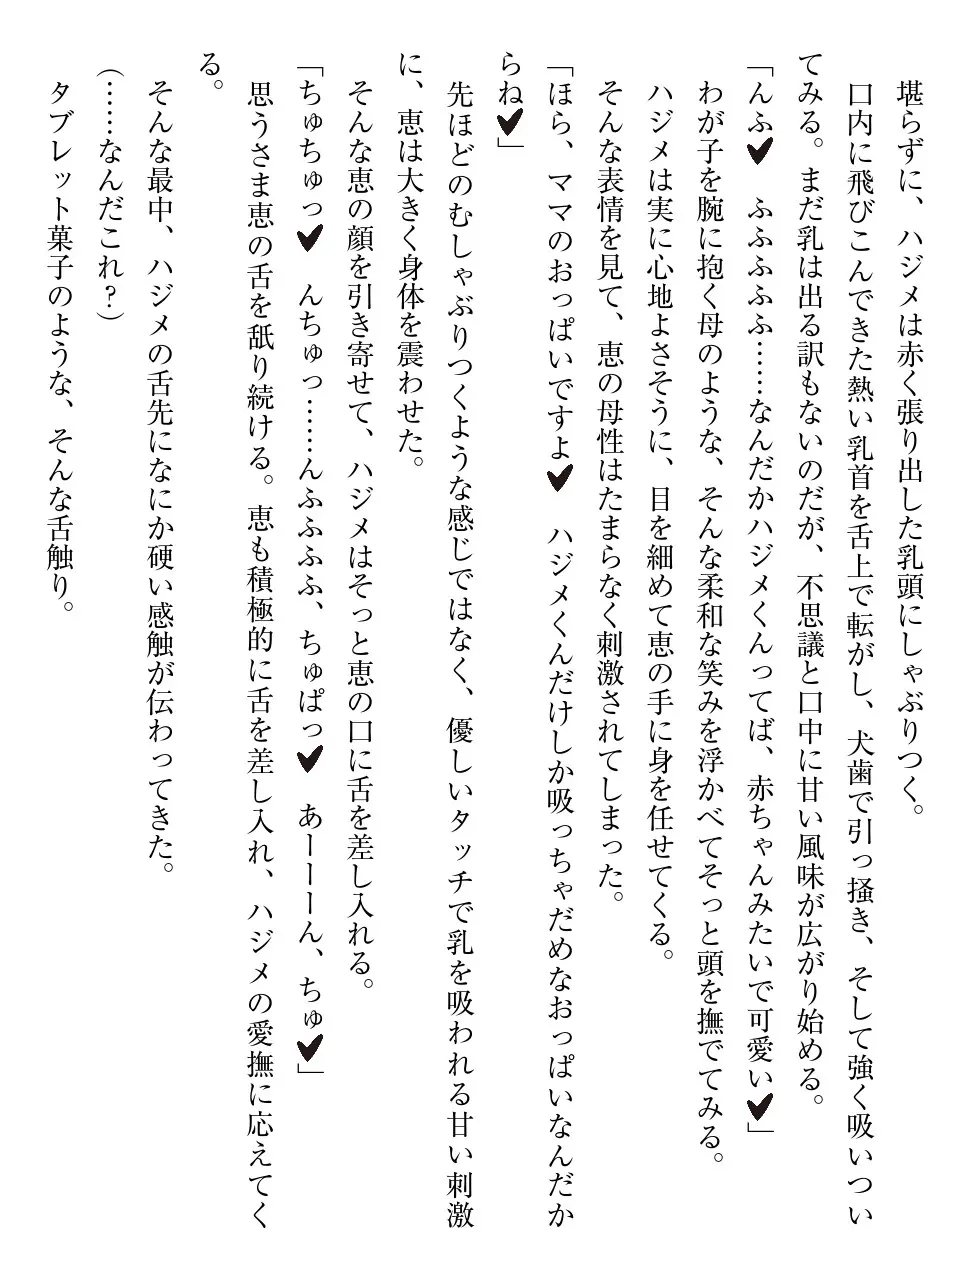 堪らずに、ハジメは赤く張り出した乳頭にしゃぶりつく。
口内に飛びこんできた熱い乳首を舌上で転がし、犬歯で引っ掻き、そして強く吸いつい
てみる。まだ乳は出る訳もないのだが、不思議と口中に甘い風味が広がり始める。
「んふ♥　ふふふふ……なんだかハジメくんってば、赤ちゃんみたいで可愛い♥」
わが子を腕に抱く母のような、そんな柔和な笑みを浮かべてそっと頭を撫でてみる。
ハジメは実に心地よさそうに、目を細めて恵の手に身を任せてくる。
そんな表情を見て、恵の母性はたまらなく刺激されてしまった。
「ほら、ママのおっぱいですよ♥　ハジメくんだけしか吸っちゃだめなおっぱいなんだか
らね♥」
先ほどのむしゃぶりつくような感じではなく、優しいタッチで乳を吸われる甘い刺激
に、恵は大きく身体を震わせた。
そんな恵の顔を引き寄せて、ハジメはそっと恵の口に舌を差し入れる。
「ちゅちゅっ♥　んちゅっ……んふふふ、ちゅぱっ♥　あーーーん、ちゅ♥」
思うさま恵の舌を舐り続ける。恵も積極的に舌を差し入れ、ハジメの愛撫に応えてく
る。
そんな最中、ハジメの舌先になにか硬い感触が伝わってきた。
(……なんだこれ？)
タブレット菓子のような、そんな舌触り。